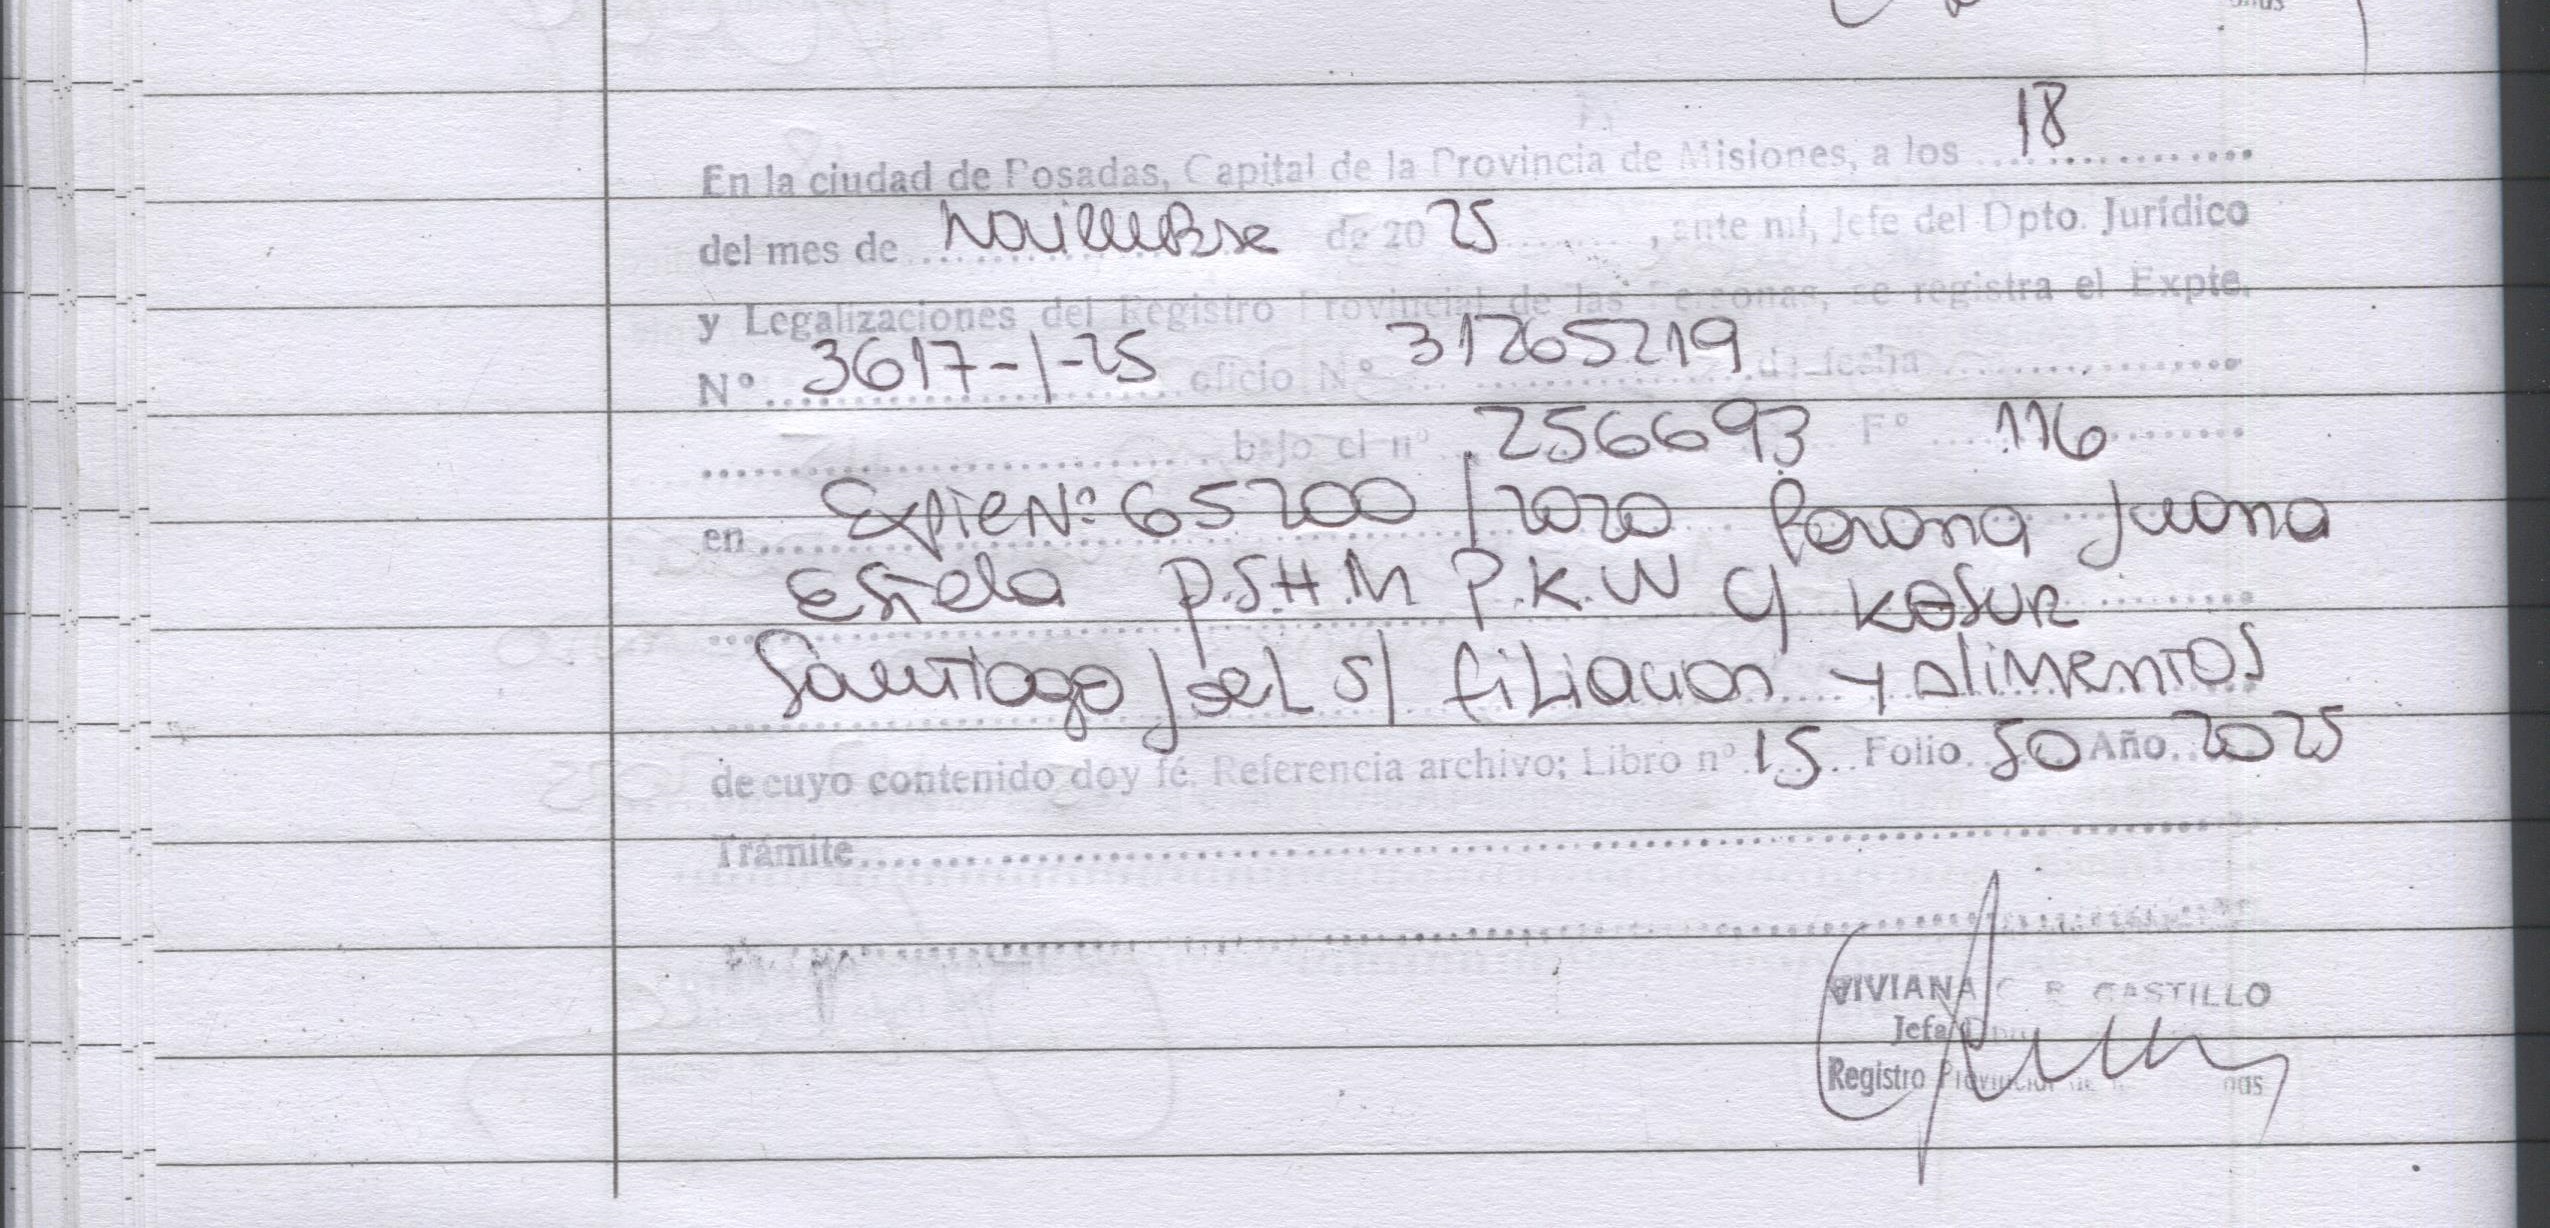 En la ciudad de Posadas, Capital de la Provincia de Misiones, a los 18
del mes de Noviembre de 2025, ante mí, Jefe del Dpto. Jurídico
y Legalizaciones del Registro Provincial de las Personas, se registra el Expte.
Nº 3617-1-25 oficio Nº 31265219 de fecha
bajo el nº 256693 Fº 116
en Expte Nº 65200/2020 Juana
Estela P.S.H.M P.K.W C/
Santiago Joel S/ filiacion y alimentos
de cuyo contenido doy fé. Referencia archivo; Libro nº 15 Folio 50 Año 2025
Trámite
VIVIANA C. B. CASTILLO
Jefa Dpto
Registro Provincial de las Personas